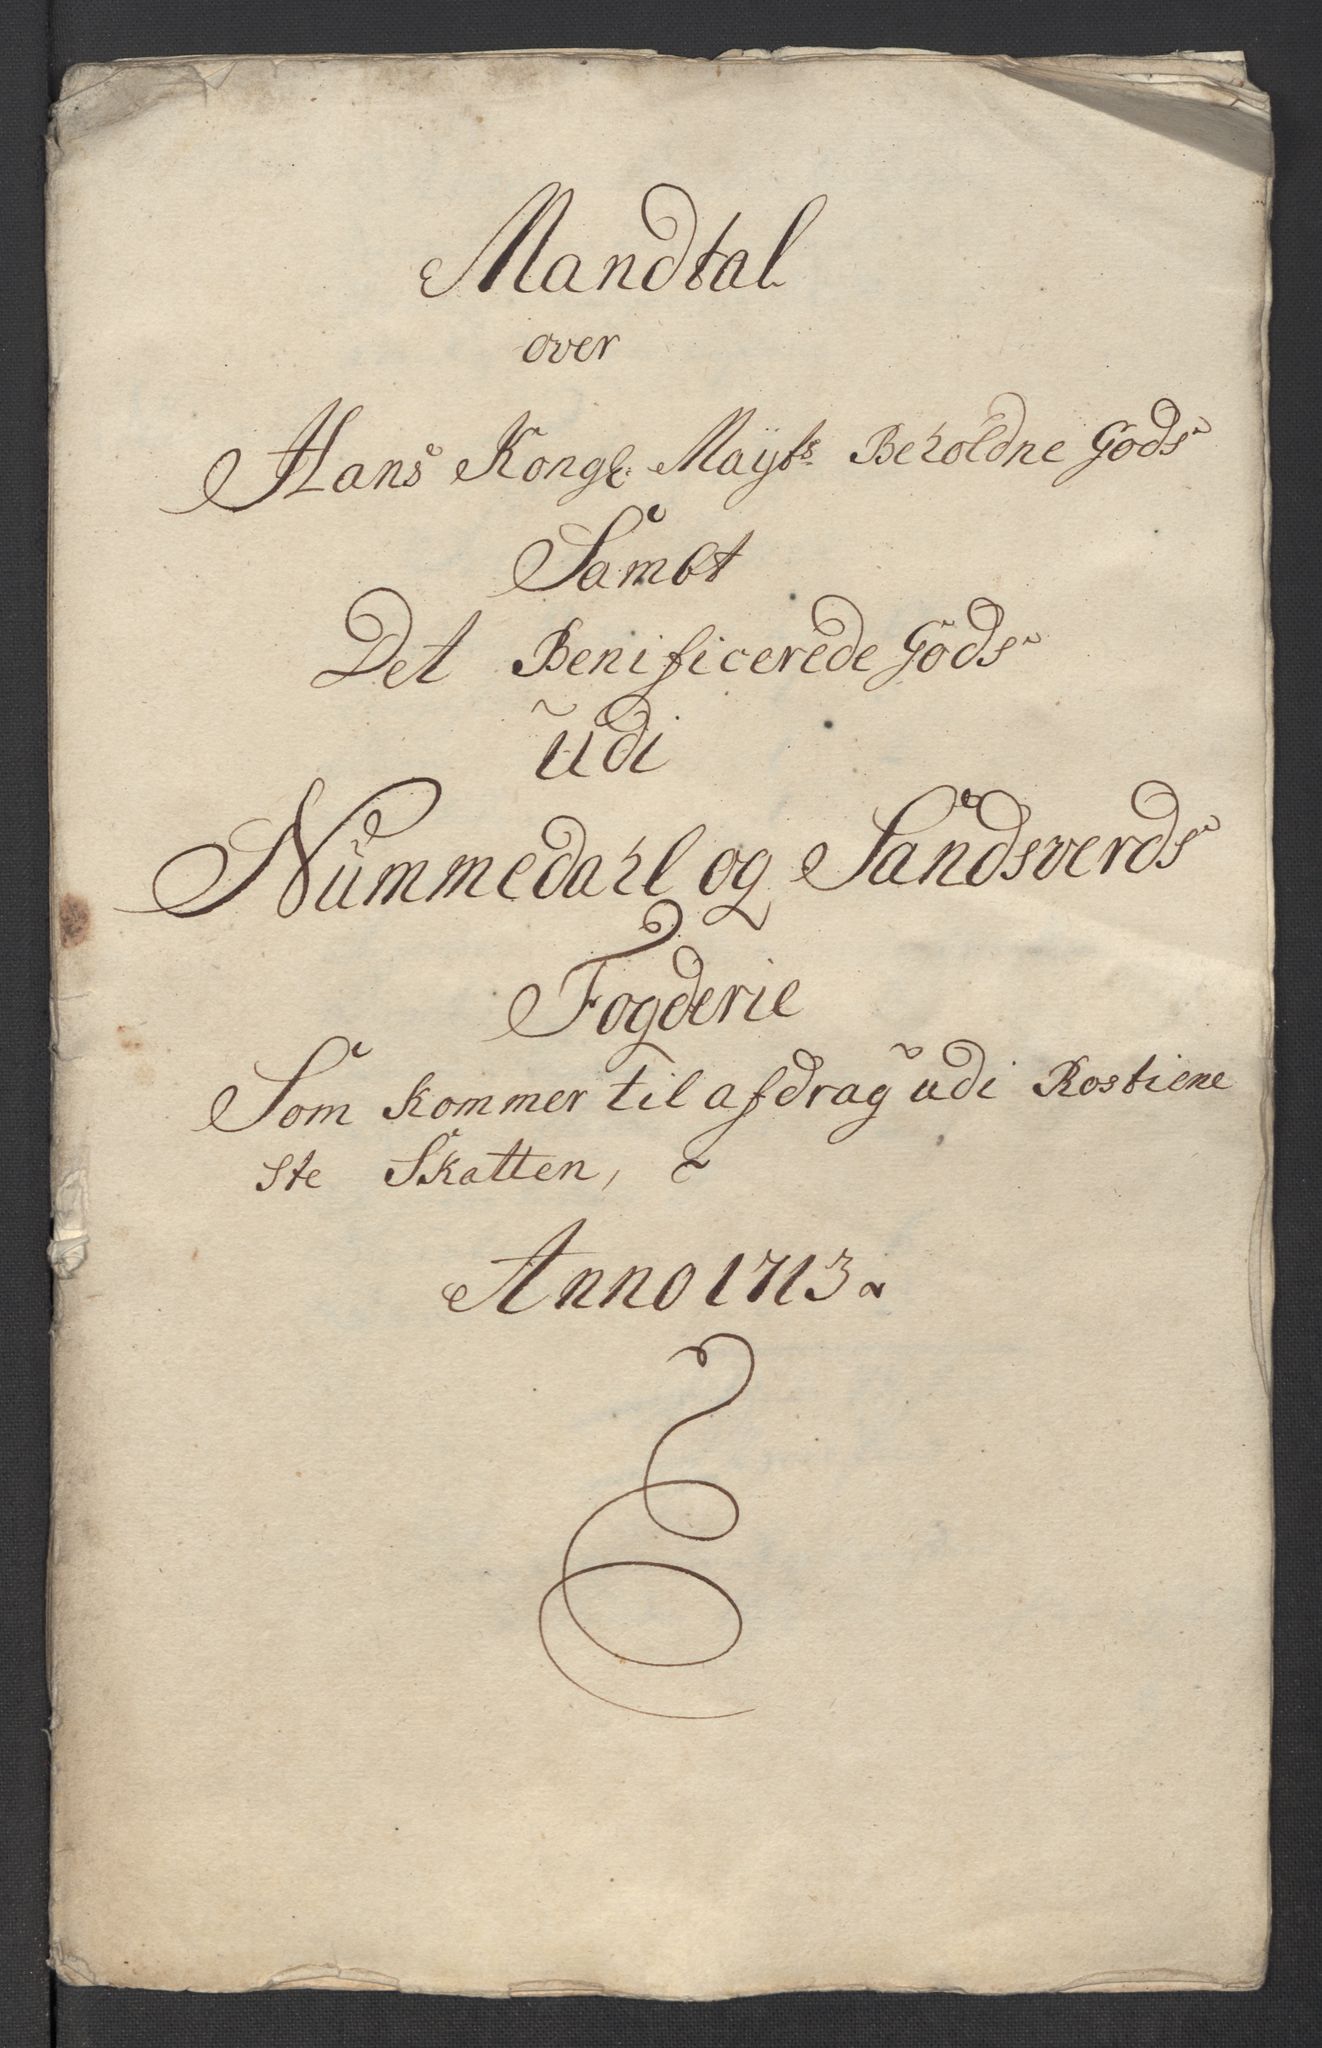 Mandtal
over
Hans Kongl: Mayts Beholdne Gods
Sambt
Det Benificerede Gods
udi
Nummedahl og Sandsverds
Fogderie
Som kommer til afdrag udi Rostiene
ste Skatten,
Anno 1713